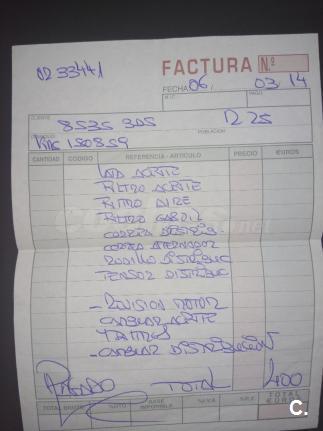 02 33441
FACTURA Nº
FECHA 06, 03, 14
CLIENTE
8535 3DS
R 25
POBLACION
KMS 150859
CANTIDAD CODIGO REFERENCIA - ARTICULO PRECIO €UROS
LATA ACEITE
FILTRO ACEITE
FILTRO AIRE
FILTRO GASOIL
CORREA DISTRIB.
CORREA ALTERNADOR
RODILLO DISTRIBUC
TENSOR DISTRIBUC
- REVISION MOTOR
CAMBIAR ACEITE
Y FILTROS
- CAMBIAR DISTRIBUCIÓN
PAGADO TOTAL 400
TOTAL BRUTO % DTO BASE IMPONIBLE % I.V.A. % R.E. TOTAL EUROS
C.